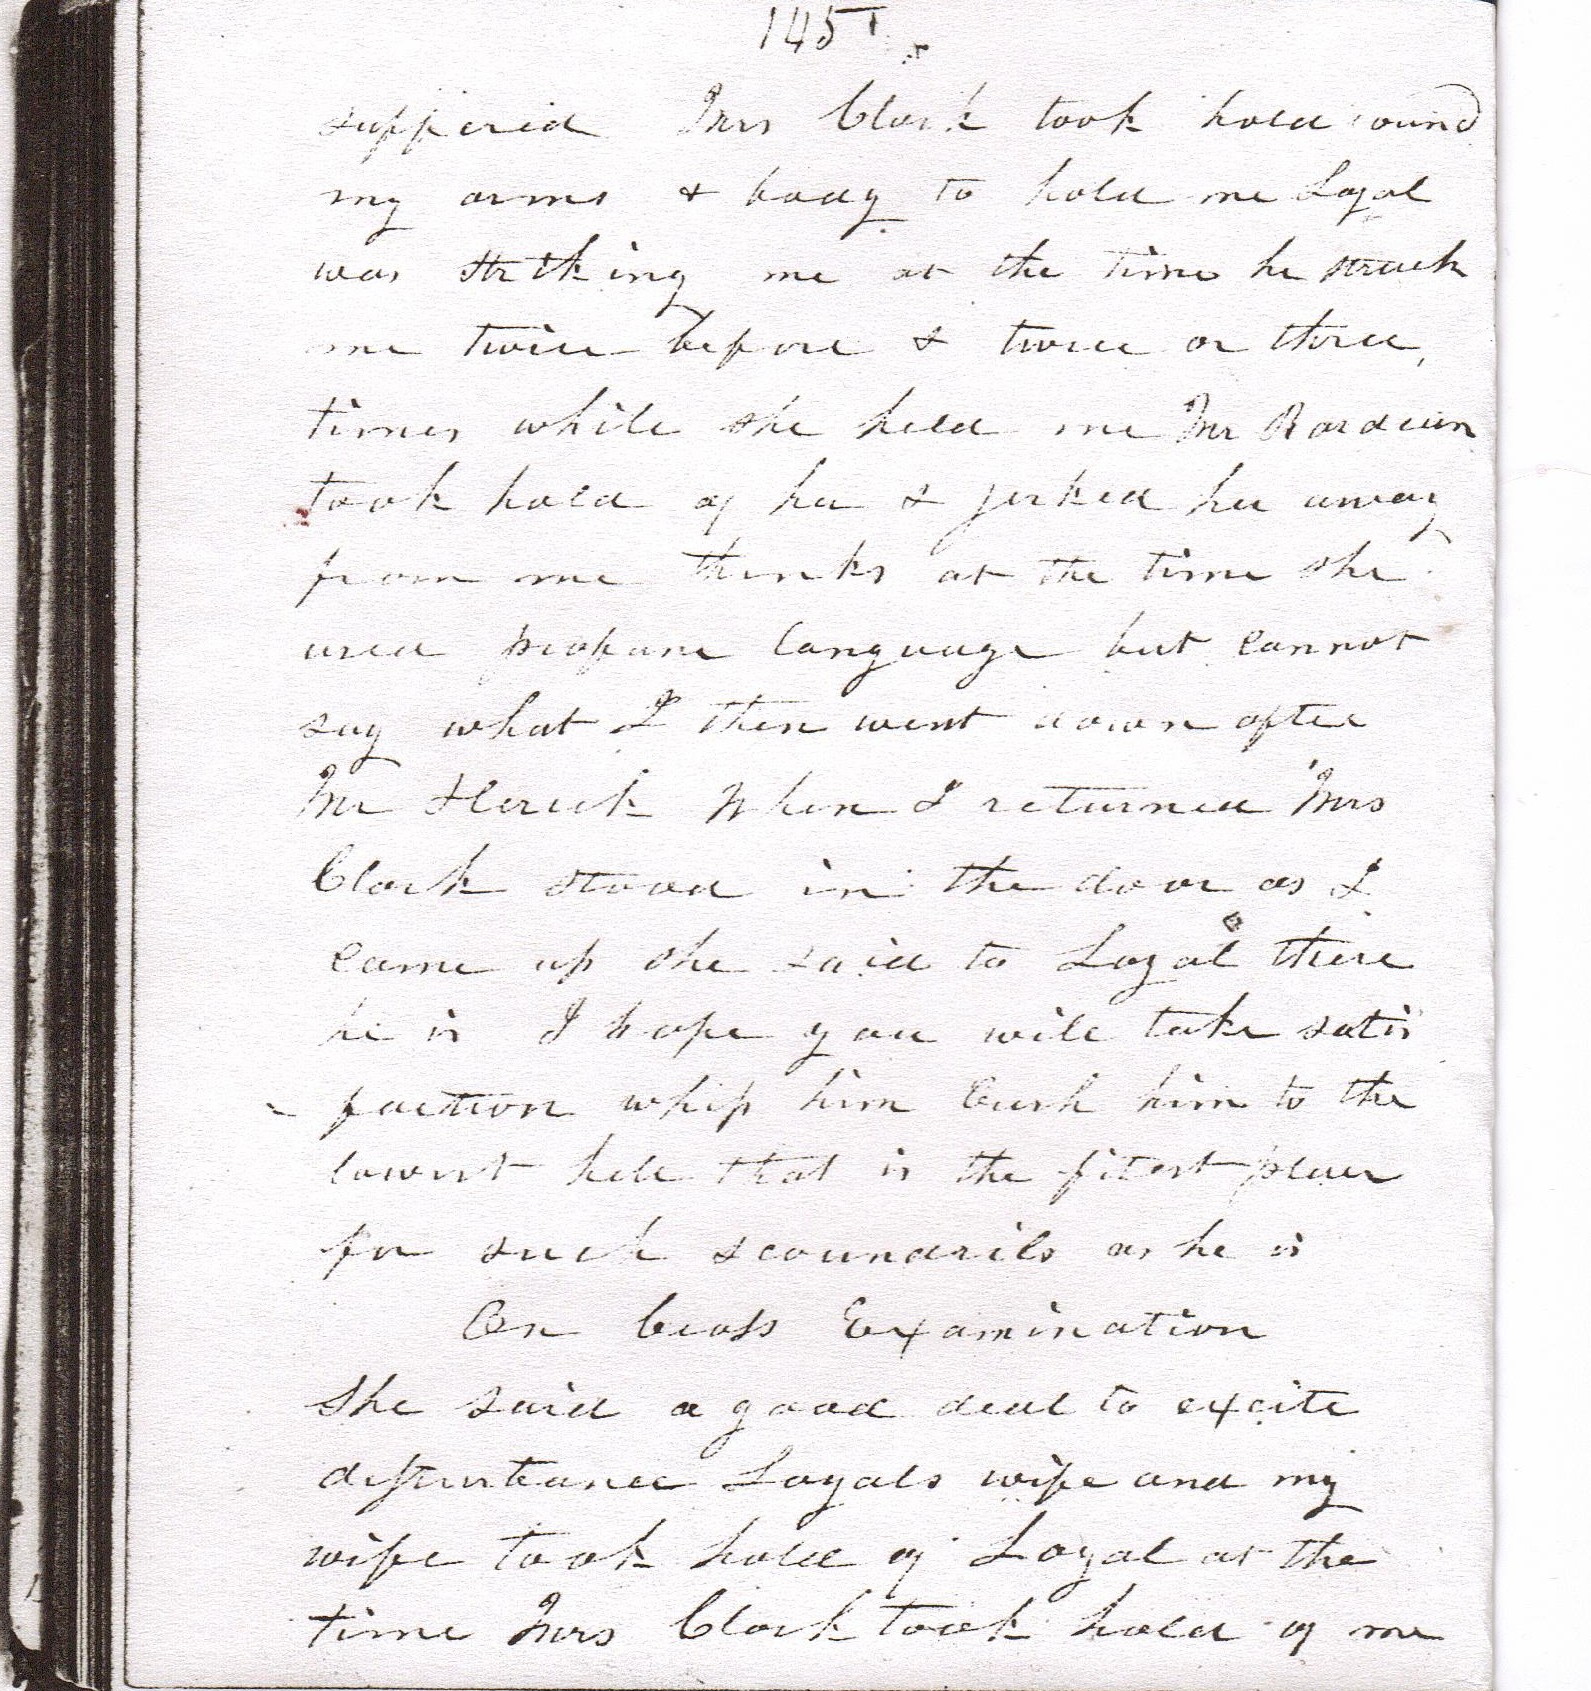 145
suppered Mrs Clark took hold round
my arms & body to hold me Loyal
was striking me at the time he struck
me twice before & twice or three
times while she held me Mr Rardeen
took hold of her & jerked her away
from me thinks at the time she
used profane language but cannot
say what I then went down after
Mr Herick When I returned Mrs
Clark stood in the door as I
came up she said to Loyal there
he is I hope you will take satis
faction whip him Cush him to the
lowest hell that is the fitest place
for such scoundrils as he is
On Cross Examination
She said a good deal to excite
disturbance Loyals wife and my
wife took hold of Loyal at the
time Mrs Clark took hold of me